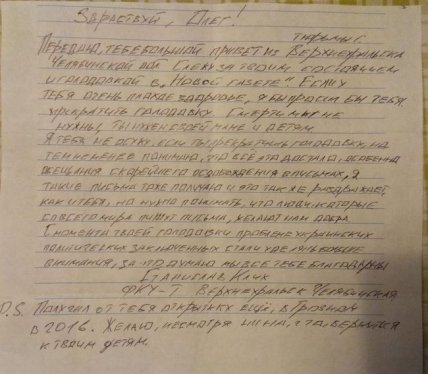 Здраствуй, Олег!
Передаю, тебе большой привет из тюрьмы г. Верхнеуральска
Челябинской обл. Слежу за твоим состоянием
и голодовкой в „Новой газете". Если у
тебя очень плохое здоровье, я бы просил бы тебя
прекратить голодовку. Смерти мы не
нужны, ты нужен своей маме и детям.
Я тебя не осужу, если ты прекратишь голодовку, но
тем не менее понимаю, что всё это достало, особенно
обещания скорейшего освобождения в письмах, я
такие письма тоже получаю и это так же раздражает,
как и тебя, но нужно понимать, что люди которые
со всего мира пишут письма, желают нам добра.
С момента твоей голодовки проблеме украинских
политических заключённых стали уделять больше
внимания, за что думаю мы все тебе благодарны
Станислав Клих
ФКУ-Т Верхнеуральск Челябинская
P.S. Получал от тебя открытку ещё, в Грозном
в 2016. Желаю, несмотря ни на, что вернуться
к твоим детям.